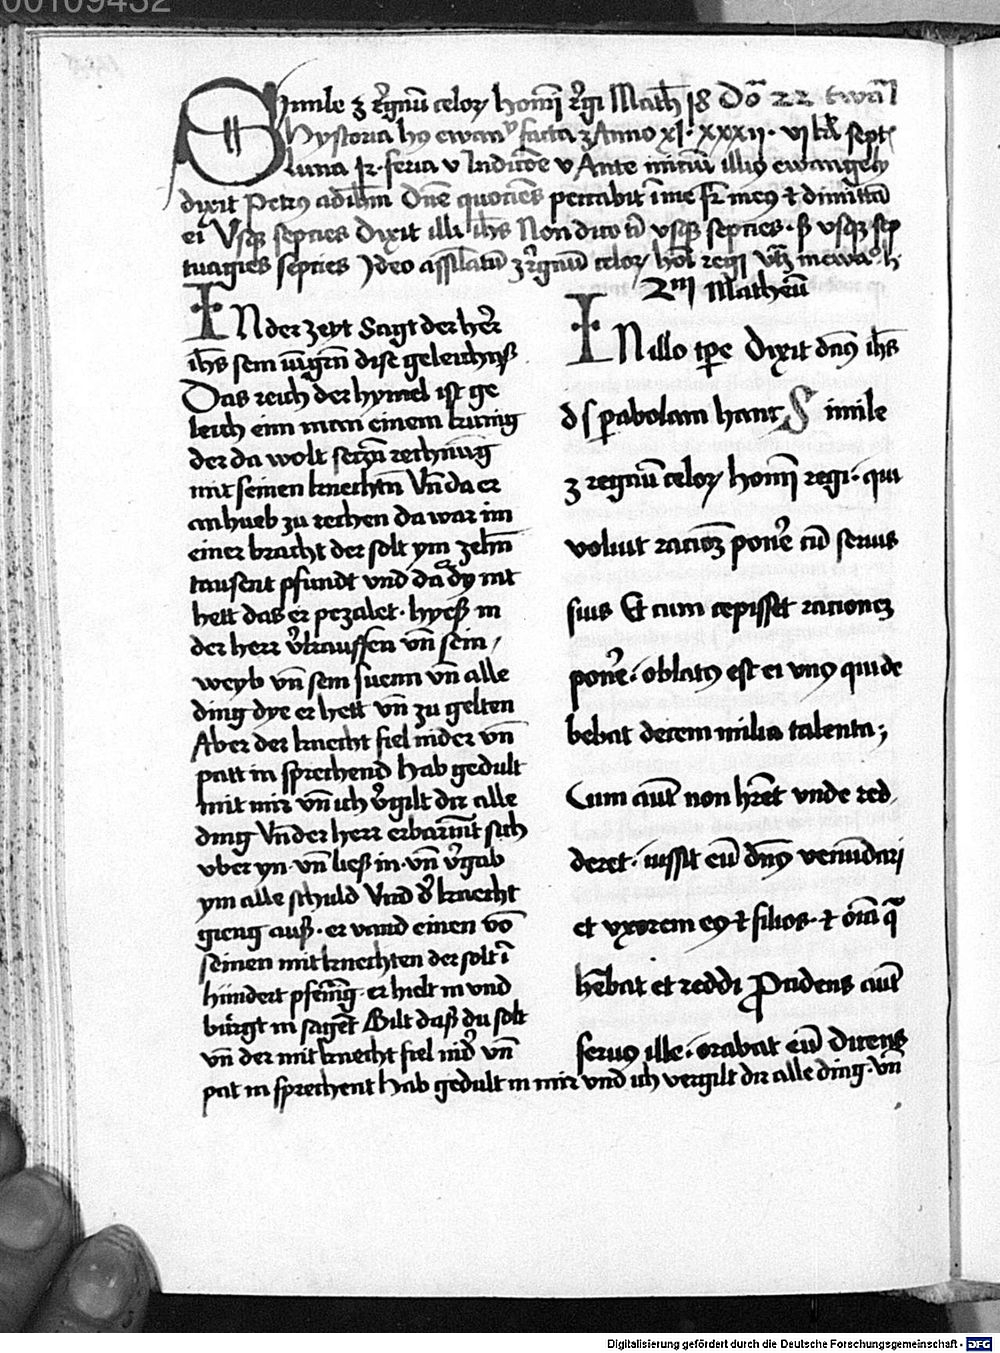 00109432
Simile ꝫ regnū celoꝝ homī regi Math 18 Dō 22
Hystoria hꝰ ewanͮ facta ꝫ Anno xl · xxxii · vi kł sept
luna feria v Indictōe v Ante iniciū illiꝰ ewangely
dixit Petrꝰ ad ihm Dn̄e quociens peccabit ī me fr̄ meꝰ ⁊ dimittā
ei Vsqꝫ septies Dixit illi ihs Non dico tī vsqꝫ septies · ß vsqꝫ sep
tuagies septies Ideo assīlatū ꝫ regnū celoꝝ hoī regi
2m Matheū
IN der zeyt Sagt der her̄
ihs sein iūgern dise geleichnyß
Das reich der hymel ist ge
leich eim man einem kunig
der da wolt seczn̄ rechnūg
mit seinen knechtn̄ Vn̄ da er
anhueb zu rechen da war im
einer bracht der solt ym zehn̄
tausent pfundt vnd da dy nit
hett das er pezalet · hyeß in
der herr v̉kauffen vn̄ sein
weyb vn̄ sein suenn vn̄ alle
ding dye er hett vn̄ zu gelten
Aber der knecht fiel nider vn̄
patt in sprechend hab gedult
mit mir vn̄ ich v̉gilt dir alle
ding Vn̄ der herr erbarmt sich
vber yn · vn̄ ließ in · vn̄ v̉gab
ym alle schuld Vnd d̉ knecht
gieng auß · er vand einen vō
seinen mitknechten der solt ī
hundert pfenīg · er hielt in vnd
würgt in sagēt Gilt daß du solt
vn̄ der mitknecht fiel nid̉ vn̄
pat in sprechent hab gedult in mir vnd ich vergilt dir alle ding · vn̄
IN illo tp̄e Dixit dn̄s ihs
d s parabolam hanc Simile
ꝫ regnū celoꝝ homī regi · qui
voluit racōeꝫ pon̉e cū seruis
suis Et cum cepisset racioneꝫ
pon̉e · oblatꝰ est ei vnꝰ qui de
bebat decem milia talenta ;
Cum aut̄ non hr̄et vnde red
deret · iussit eū dn̄s venūdari
et vxorem eꝰ ⁊ filios · ⁊ om̄ia q̄
hēbat et reddi Procidens aut̄
seruꝰ ille · orabat eū dicens
Digitalisierung gefördert durch die Deutsche Forschungsgemeinschaft - DFG